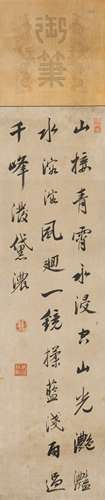 御筆
山接青霄水浸空山光灩灩
水溶溶風迴一鏡揉藍淺雨過
千峰潑黛濃